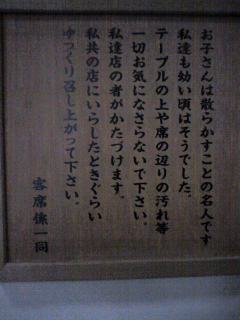 お子さんは散らかすことの名人です
私達も幼い頃はそうでした。
テーブルの上や席の辺りの汚れ等
一切お気になさらないで下さい。
私達店の者がかたづけます。
私共の店にいらしたときぐらい
ゆっくり召し上がって下さい。
客席係一同